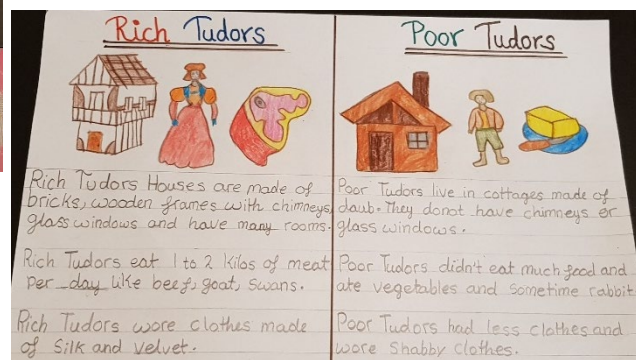 Rich Tudors
Rich Tudors Houses are made of
bricks, wooden frames with chimneys,
glass windows and have many rooms.
Rich Tudors eat 1 to 2 kilos of meat
per day like beef, goat, swans.
Rich Tudors wore clothes made
of Silk and velvet.
Poor Tudors
Poor Tudors live in cottages made of
daub. They donot have chimneys or
glass windows.
Poor Tudors didn't eat much food and
ate vegetables and sometime rabbit
Poor Tudors had less clothes and
wore Shabby clothes.